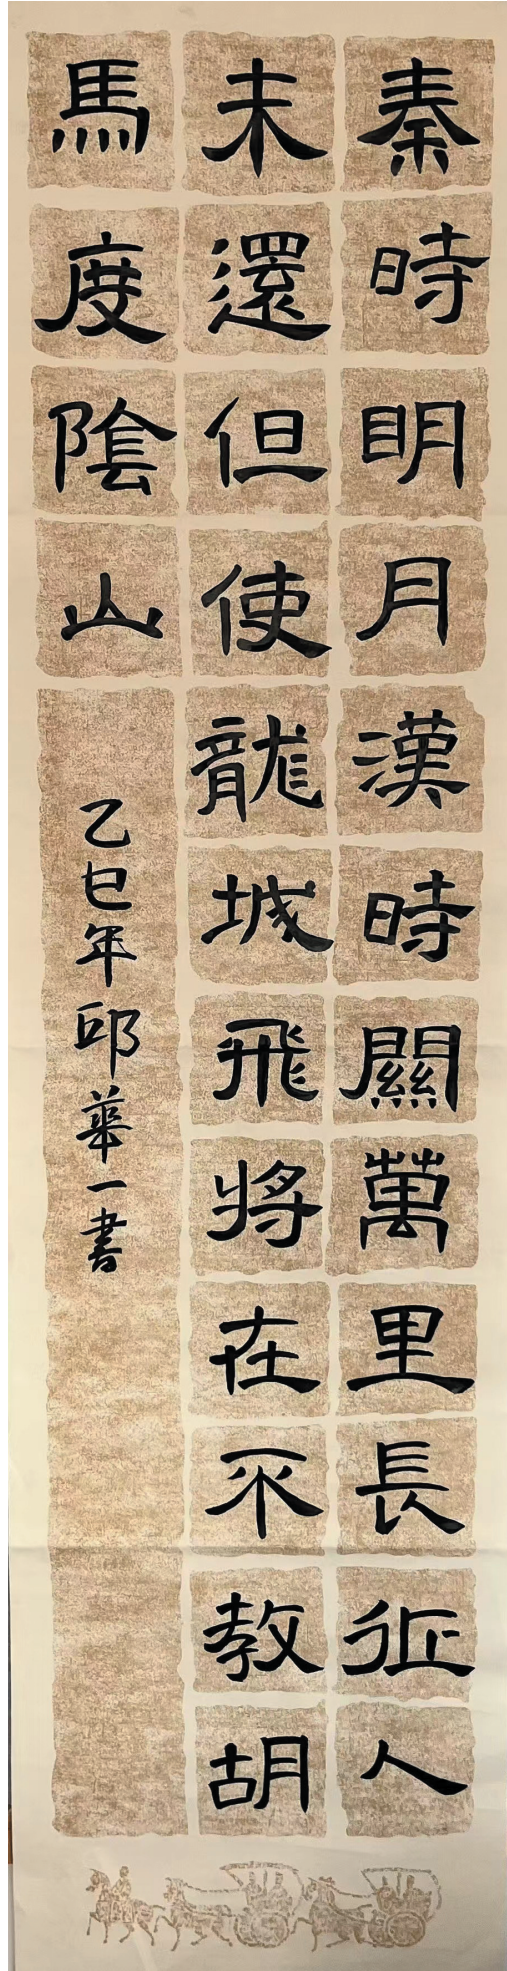 秦時明月漢時關萬里長征人
未還但使龍城飛將在不教胡
馬度陰山
乙巳年邱華一書